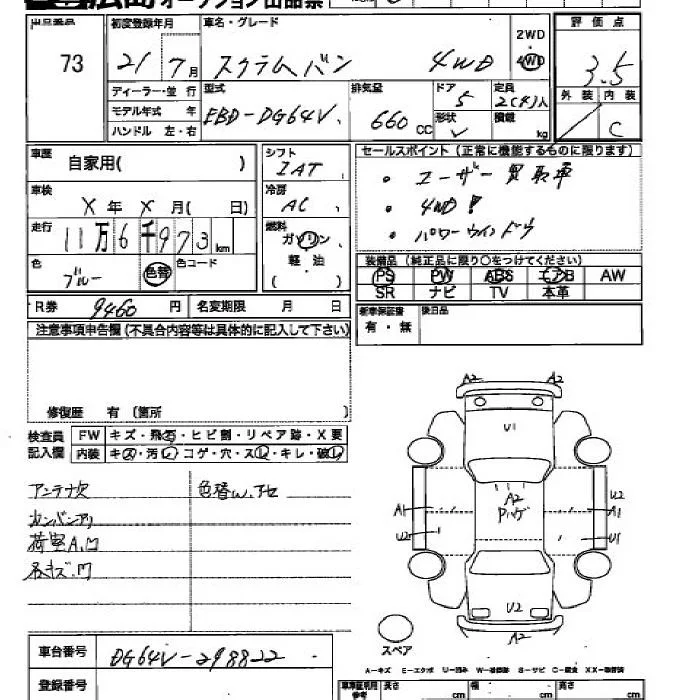 オークション出品票
出品番号 73
初度登録年月 21年 7月
車名・グレード スクラムバン 4WD
2WD
4WD
評価点 3.5
外装 内装 C
ディーラー・並行
モデル年式 年
ハンドル 左・右
型式 EBD-DG64V
排気量 660 CC
ドア 5
形状 V
定員 2(4)人
積載 kg
車歴 自家用( )
車検 X 年 X 月( 日)
走行 11万6千973km
色 ブルー 色替 色コード
シフト IAT
冷房 AC
燃料 ガソリン、
軽・油
( )
セールスポイント (正常に機能するものに限ります)
・ユーザー買取車
・4WD!
・パワーウインドウ
装備品 (純正品に限り○をつけてください)
PS PW ABS エアB AW
SR ナビ TV 本革
R券 9460 円 名変期限 月 日
新車保証書 有・無 後日品
注意事項申告欄 (不具合内容等は具体的に記入して下さい)
修復歴 有 (箇所 )
検査員 FW キズ・飛石・ヒビ割・リペア跡・X要
記入欄 内装 キズ・汚レ・コゲ・穴・スレ・キレ・破レ
アンテナ欠 色替w.
カンバンアリ
荷室A.凹
小キズ.凹
A2 A2
U1
A2
Pハゲ
A1 U2
U2 A1
U1
U2
A2
スペア
A-キズ E-エクボ U-凹み W-補修跡 S-サビ C-腐食 XX-取替済
車台番号 DG64V-298822
登録番号
車庫証明用参考 長さ cm 幅 cm 高さ cm